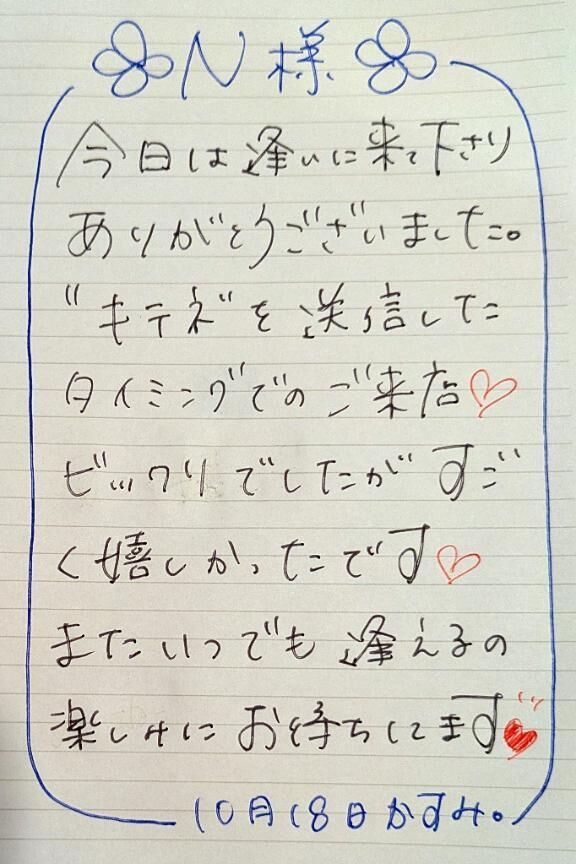 N様
今日は逢いに来て下さり
ありがとうございました。
"キテネ"を送信した
タイミングでのご来店♡
ビックリでしたがすご
く嬉しかったです♡
またいつでも逢えるの
楽しみにお待ちしてます♥
10月18日かすみ。